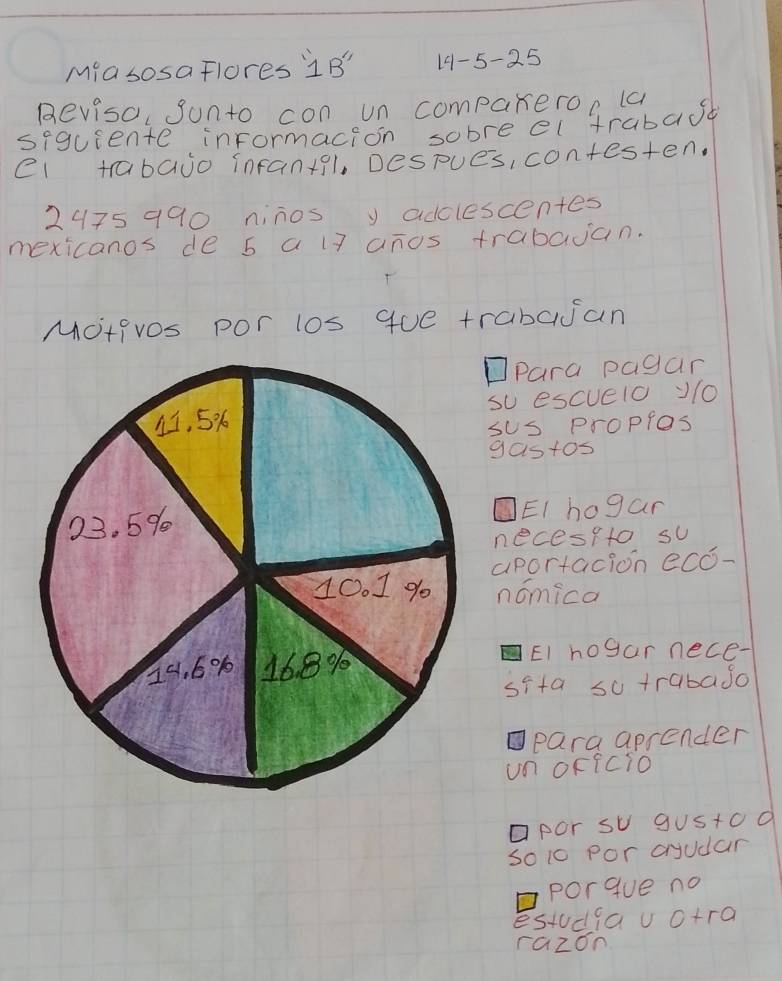 Miasosa Flores "1B" 14-5-25
Revisa, Junto con un compañero, la
siguiente información sobre el trabajo
el trabajo infantil. Después, contesten.
2475 990 niños y adolescentes
mexicanos de 5 a 17 años trabajan.
Motivos por los que trabajan
11.5%
23.5%
10.1%
14.6%
16.8%
Para pagar
su escuela y/o
sus propios
gastos
El hogar
necesita su
aportación eco-
nómica
El hogar nece-
sita su trabajo
para aprender
un oficio
por su gusto o
solo por ayudar
porque no
estudia u otra
razón